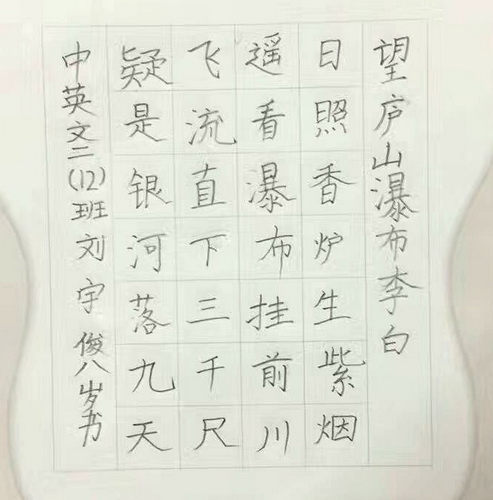 望庐山瀑布李白
日照香炉生紫烟
遥看瀑布挂前川
飞流直下三千尺
疑是银河落九天
中英文二(12)班刘宇俊八岁书